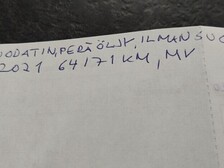 ODATIN, PERÄÖLJY, ILMANSUO
2021 64171KM, MV